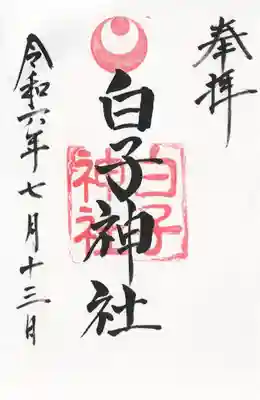 奉拝
白子神社
白子
神社
令和六年七月十三日